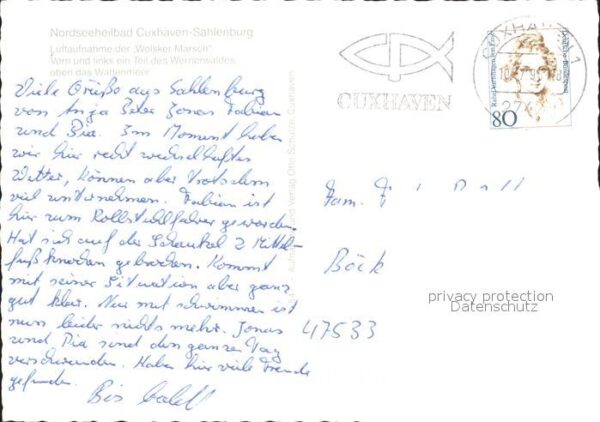 Nordseeheilbad Cuxhaven-Sahlenburg
Luftaufnahme der „Wolsker Marsch"
Vorn und links ein Teil des Wernerwaldes
oben das Wattenmeer
Viele Grüße aus Sahlenburg
von Anja Peter Jonas Fabian
und Pia. Im Moment haben
wir hier recht wechselhaftes
Wetter, können aber trotzdem
viel unternehmen. Fabian ist
hier zum Rollstuhlfahrer geworden.
Hat sich auf der Schaukel 2 Mittel-
fußknochen gebrochen. Kommt
mit seiner Situation aber ganz
gut klar. Nur mit schwimmen ist
nun leider nichts mehr. Jonas
und Pia sind den ganzen Tag
verschwunden. Haben hier viele Freunde
gefunden.
Bis bald!
CUXHAVEN
CUXHAVEN 1
80
Fam.
Böck
47533
privacy protection
Datenschutz